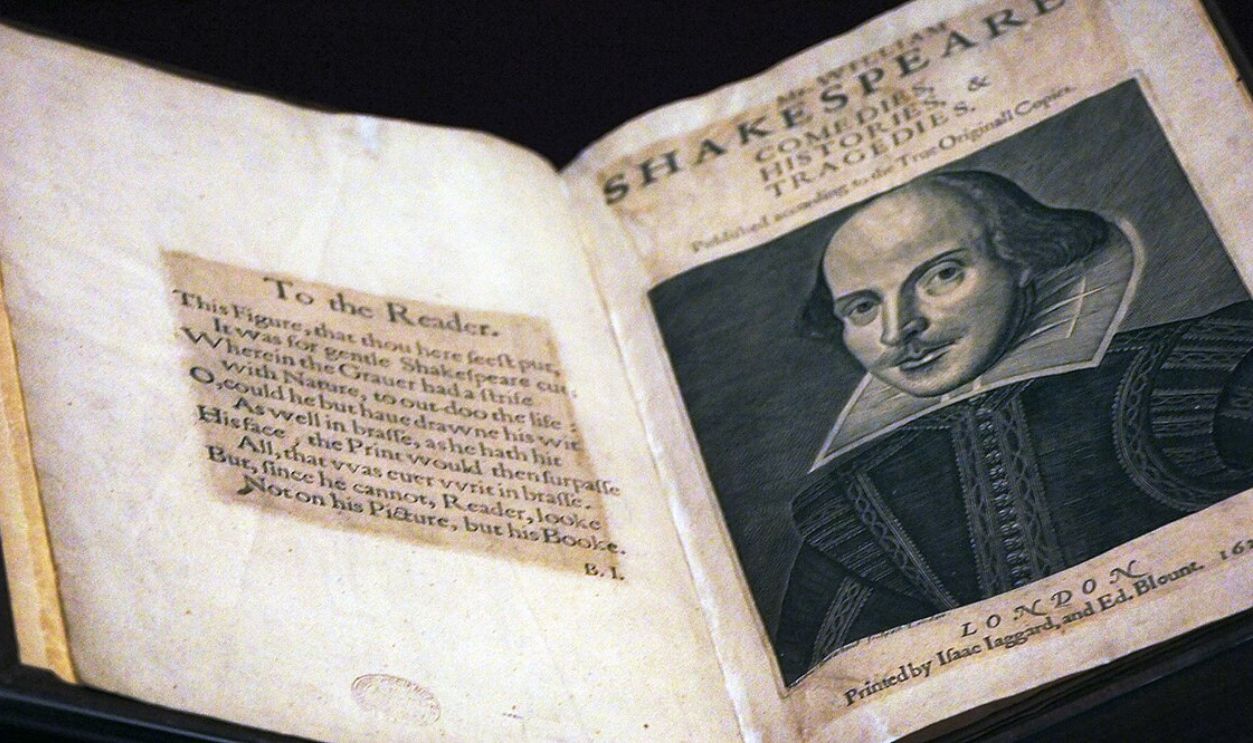 To the Reader.
This Figure, that thou here ſeeſt put,
It was for gentle Shakeſpeare cut,
Wherein the Grauer had a ſtrife
with Nature, to out-doo the life :
O, could he but haue drawne his wit
As well in braſſe, as he hath hit
His face, the Print would then ſurpaſſe
All, that vvas euer vvrit in braſſe.
But, ſince he cannot, Reader, looke
Not on his Picture, but his Booke.
B. I.
Mr. WILLIAM
SHAKESPEARE
COMEDIES,
HISTORIES, &
TRAGEDIES.
Published according to the True Originall Copies.
LONDON
Printed by Iſaac Iaggard, and Ed. Blount. 162